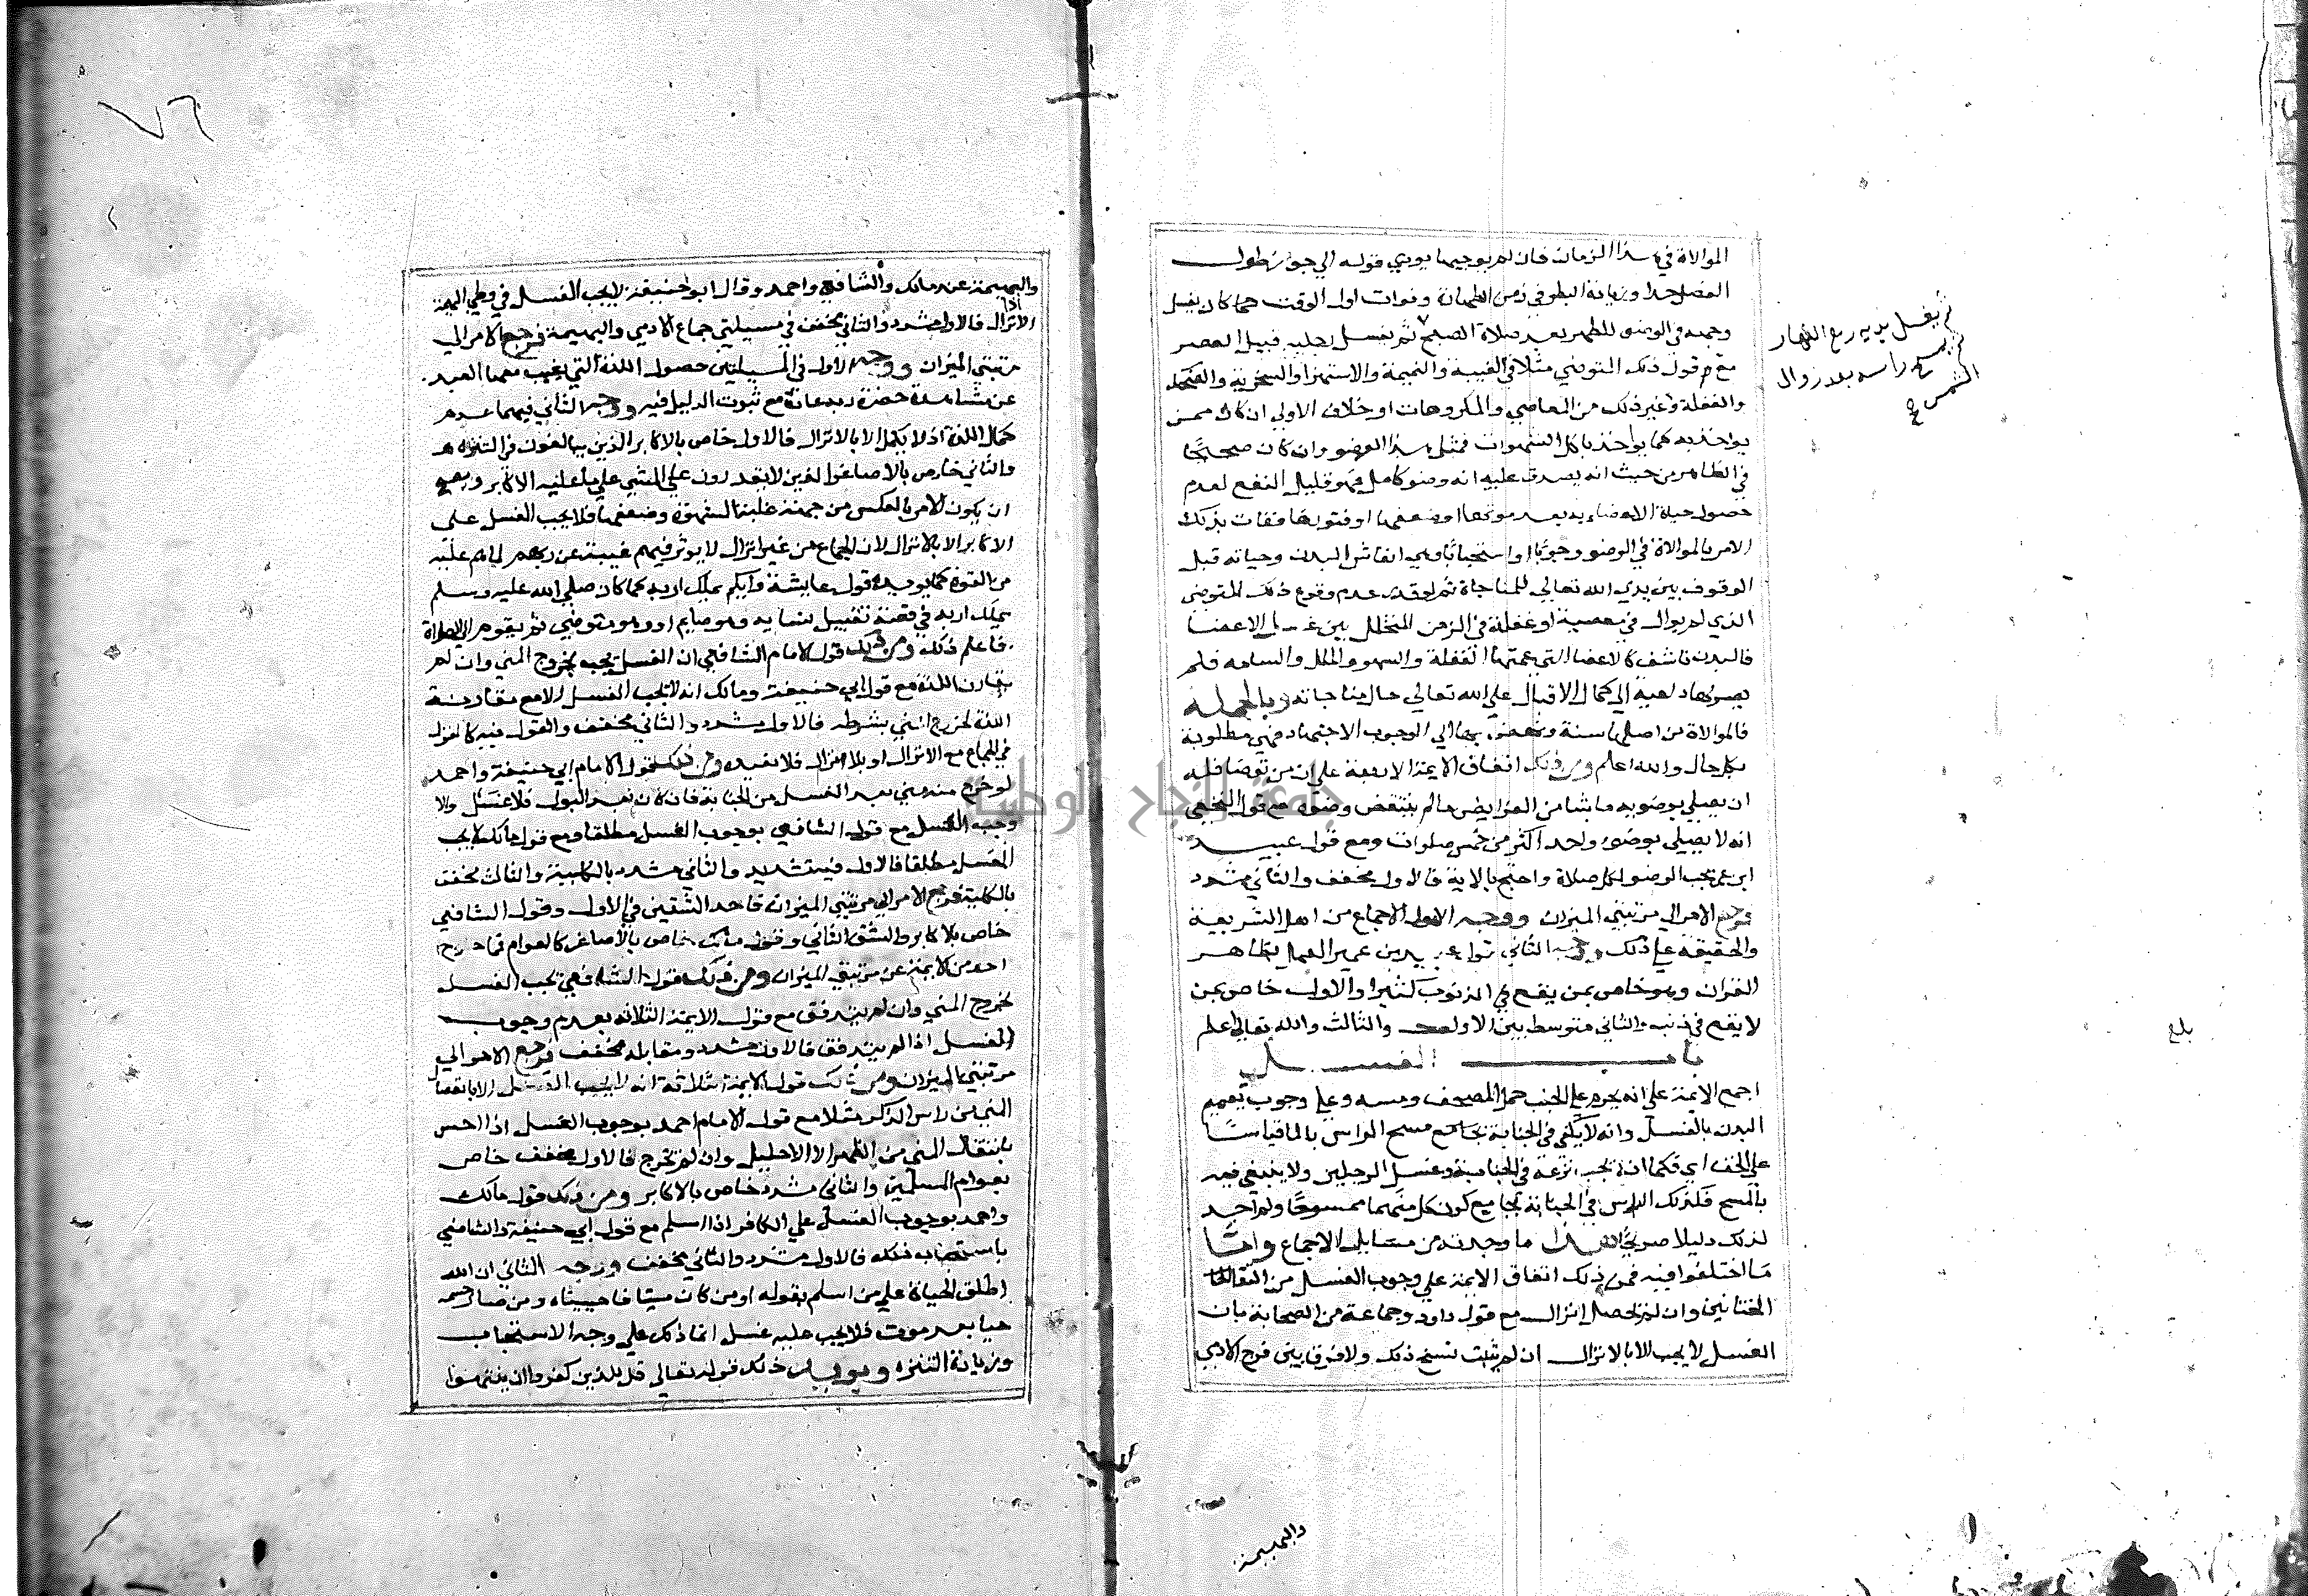 الموالاة في هذا الزمان فان لم يوجبها يودي قوله الي جواز طول
الفصل جدا وزيادة البطو في زمن الطهارة وفوات اول الوقت كما كان يغسل
وجهه في الوضوء للظهر بعد صلاة الصبح ثم يغسل رجليه قبيل العصر
ثم يغسل يديه ربع النهار
ثم يمسح راسه بعد زوال
الشمس صح
مع وقوع ذلك المتوضي مثلا في الغيبة والنميمة والاستهزا والسخرية والضحك
والغفلة وغير ذلك من المعاصي والمكروهات او خلاف الاولي ان كان ممن
يواخذ به كما يواخذ باكل الشهوات فمثل هذا الوضو وان كان صحيحا
في الظاهر من حيث انه يصدق عليه انه وضو كامل فهو قليل النفع لعدم
حصول حياة الاعضاء به بعد موتها او ضعفها او فتورها ففات بذلك
الامر بالموالاة في الوضو وجوبا او استحبابا وهي انعاش البدن وحياته قبل
الوقوف بين يدي الله تعالي للمناجاة ثم لو قدر عدم وقوع ذلك المتوضي
الذي لم يوال في معصية او غفلة في الزمن المتخلل بين غسل الاعضا
فالبدن ناشف كالاعضا التي عمتها الغفلة والسهو والملل والسامه فلم
يصر بها داعية الي كمال الاقبال علي الله تعالي حال مناجاته وبالجملة
فالموالاة من اصلها سنة وبعضهم بها الي الوجوب الاجتهاد فهي مطلوبة
بكل حال والله اعلم ومن ذلك اتفاق الايمة الاربعة علي ان من توضا فله
ان يصلي بوضويه ما شا من الفرايض ما لم ينتقض وضوه مع قول النخعي
انه لا يصلي بوضوء واحد اكثر من خمس صلوات ومع قول عبيد
ابن عمر يجب الوضو لكل صلاة واحتج بالاية فالاول مخفف والثاني مشدد
فرجع الامر الي مرتبتي الميزان ووجه الاول الاجماع من اهل الشريعة
والحقيقة علي ذلك ووجه الثاني قول عبيد بن عمير العمل بظاهر
القران وهو خاص بمن يقع في الذنوب كثيرا والاول خاص بمن
لا يقع في ذنب والثاني متوسط بين الاول والثالث والله تعالي اعلم
بلغ
باب الغسل
اجمع الايمة علي انه يحرم علي الجنب حمل المصحف ومسه وعلي وجوب تعميم
البدن بالغسل وانه لا يكفي في الجنابة مسح الراس بالما قياسا
علي الخف اي فكما انه يجب نزعه في الجنابة وغسل الرجلين ولا ينبغي فيه
بالمسح فكذلك الراس في الجنابة بجامع كون كل منهما ممسوحا ولم اجد
لذلك دليلا صريحا هذا ما وجدته من مسايل الاجماع واما
ما اختلفوا فيه فمن ذلك اتفاق الايمة علي وجوب الغسل من التقا
الختانين وان لم يحصل انزال مع قول داود وجماعة من الصحابة بان
الغسل لا يجب الا بالانزال ان لم يثبت نسخ ذلك ولا فرق بين فرج الادمي
والبهيمة
٧٦
والبهيمة عند مالك والشافعي واحمد وقال ابو حنيفة لا يجب الغسل في وطي البهيمة
الا بانزال فالاول مشدد والثاني مخفف في مسيلتي جماع الادمي والبهيمة فرجع الامر الي
مرتبتي الميزان ووجه الاول في المسيلتين حصول اللذة التي يغيب معها العبد
عن مشاهدة حضرة ربه عادة مع ثبوت الدليل فيه ووجه الثاني فيهما عدم
كمال اللذة اذ لا يكمل الا بالانزال فالاول خاص بالاكابر الذين يبالغون في التنزه
والثاني خاص بالاصاغر الذين لا يقدرون علي المشي علي ما عليه الاكابر ويصح
ان يكون الامر بالعكس من جهة غلبة الشهوة وضعفها فلا يجب الغسل علي
الاكابر الا بالانزال لان الجماع من غير انزال لا يوثر فيهم غيبة عن ربهم لما هم عليه
من القوة كما يويده قول عايشة وايكم يملك اربه كما كان صلي الله عليه وسلم
يملك اربه في قصة تقبيل نسايه وهو صايم او وهو متوضي ثم يقوم الي الصلاة
فاعلم ذلك ومن ذلك قول الامام الشافعي ان الغسل يجب بخروج المني وان لم
يقارن اللذة مع قول ابي حنيفة ومالك انه لا يجب الغسل الا مع مقارنة
اللذة لخروج المني بشرطه فالاول مشدد والثاني مخفف والقول فيه كالقول
في الجماع مع الانزال او بلا انزال فلا نعيده ومن ذلك قول الامام ابي حنيفة واحمد
لو خرج منه مني بعد الغسل من الجنابة فان كان بعد البول فلا غسل والا
وجب الغسل مع قول الشافعي بوجوب الغسل مطلقا ومع قول مالك لا يجب
الغسل مطلقا فالاول فيه تشديد والثاني مشدد بالكلية والثالث مخفف
بالكلية فرجع الامر الي مرتبتي الميزان فاحد الشقين في الاول وقول الشافعي
خاص بالاكابر والشق الثاني وقول مالك خاص بالاصاغر كالعوام فما خرج
احد من الايمة عن مرتبتي الميزان ومن ذلك قول الشافعي يجب الغسل
بخروج المني وان لم يتدفق مع قول الايمة الثلاثه بعدم وجوب
الغسل اذا لم يتدفق فالاول مشدد ومقابله مخفف فرجع الامر الي
مرتبتي الميزان ومن ذلك قول الايمة الثلاثة انه لا يجب الغسل الا بانفصال
المني من راس الذكر مثلا مع قول الامام احمد بوجوب الغسل اذا احس
بانتقال المني من الظهر الي الاحليل وان لم يخرج فالاول مخفف خاص
بعوام المسلمين والثاني مشدد خاص بالاكابر ومن ذلك قول مالك
واحمد بوجوب الغسل علي الكافر اذا اسلم مع قول ابي حنيفة والشافعي
باستحبابه فالاول مشدد والثاني مخفف ووجه الثاني ان الله
اطلق الحياة علي من اسلم بقوله او من كان ميتا فاحييناه ومن صار جسمه
حيا بعد موت فلا يجب عليه غسل انما ذلك علي وجه الاستحباب
وزيادة التنزه ويويد ذلك قوله تعالي قل للذين كفروا ان ينتهوا
جامعة النجاح الوطنية